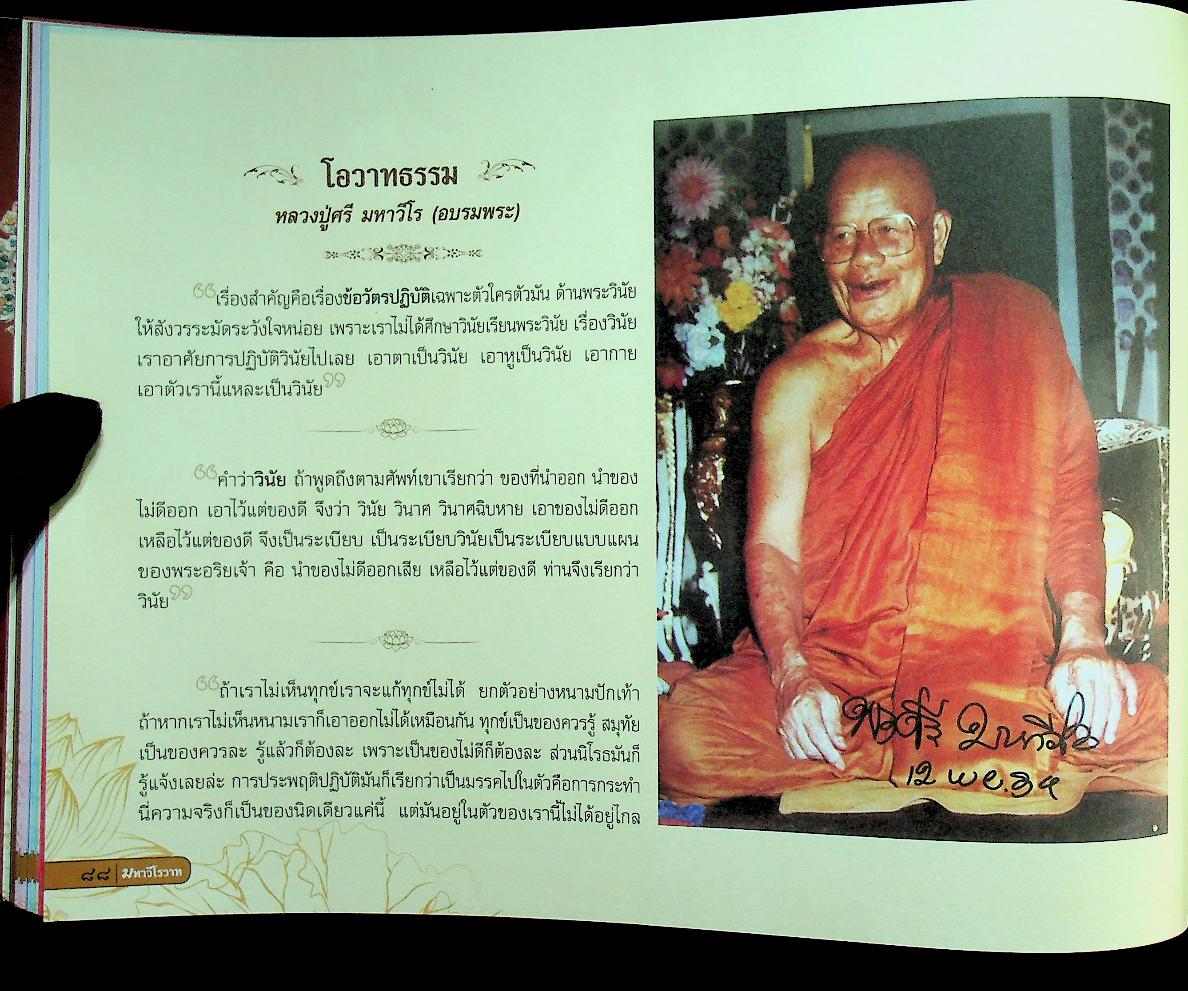 โอวาทธรรม
หลวงปู่ศรี มหาวีโร (อบรมพระ)
“เรื่องสำคัญคือเรื่องข้อวัตรปฏิบัติเฉพาะตัวใครตัวมัน ด้านพระวินัย
ให้สังวรระมัดระวังใจหน่อย เพราะเราไม่ได้ศึกษาวินัยเรียนพระวินัย เรื่องวินัย
เราอาศัยการปฏิบัติวินัยไปเลย เอาตาเป็นวินัย เอาหูเป็นวินัย เอากาย
เอาตัวเรานี้แหละเป็นวินัย”
“คำว่าวินัย ถ้าพูดถึงตามศัพท์เขาเรียกว่า ของที่นำออก นำของ
ไม่ดีออก เอาไว้แต่ของดี จึงว่า วินัย วินาศ วินาศฉิบหาย เอาของไม่ดีออก
เหลือไว้แต่ของดี จึงเป็นระเบียบ เป็นระเบียบวินัยเป็นระเบียบแบบแผน
ของพระอริยเจ้า คือ นำของไม่ดีออกเสีย เหลือไว้แต่ของดี ท่านจึงเรียกว่า
วินัย”
“ถ้าเราไม่เห็นทุกข์เราจะแก้ทุกข์ไม่ได้ ยกตัวอย่างหนามปักเท้า
ถ้าหากเราไม่เห็นหนามเราก็เอาออกไม่ได้เหมือนกัน ทุกข์เป็นของควรรู้ สมุทัย
เป็นของควรละ รู้แล้วก็ต้องละ เพราะเป็นของไม่ดีก็ต้องละ ส่วนนิโรธมันก็
รู้แจ้งเลยล่ะ การประพฤติปฏิบัติมันก็เรียกว่าเป็นมรรคไปในตัวคือการกระทำ
นี่ความจริงก็เป็นของนิดเดียวแค่นี้ แต่มันอยู่ในตัวของเรานี้ไม่ได้อยู่ไกล
๘๘ มหาวีโรวาท
มหาวีโร
12 พ.ย. 34